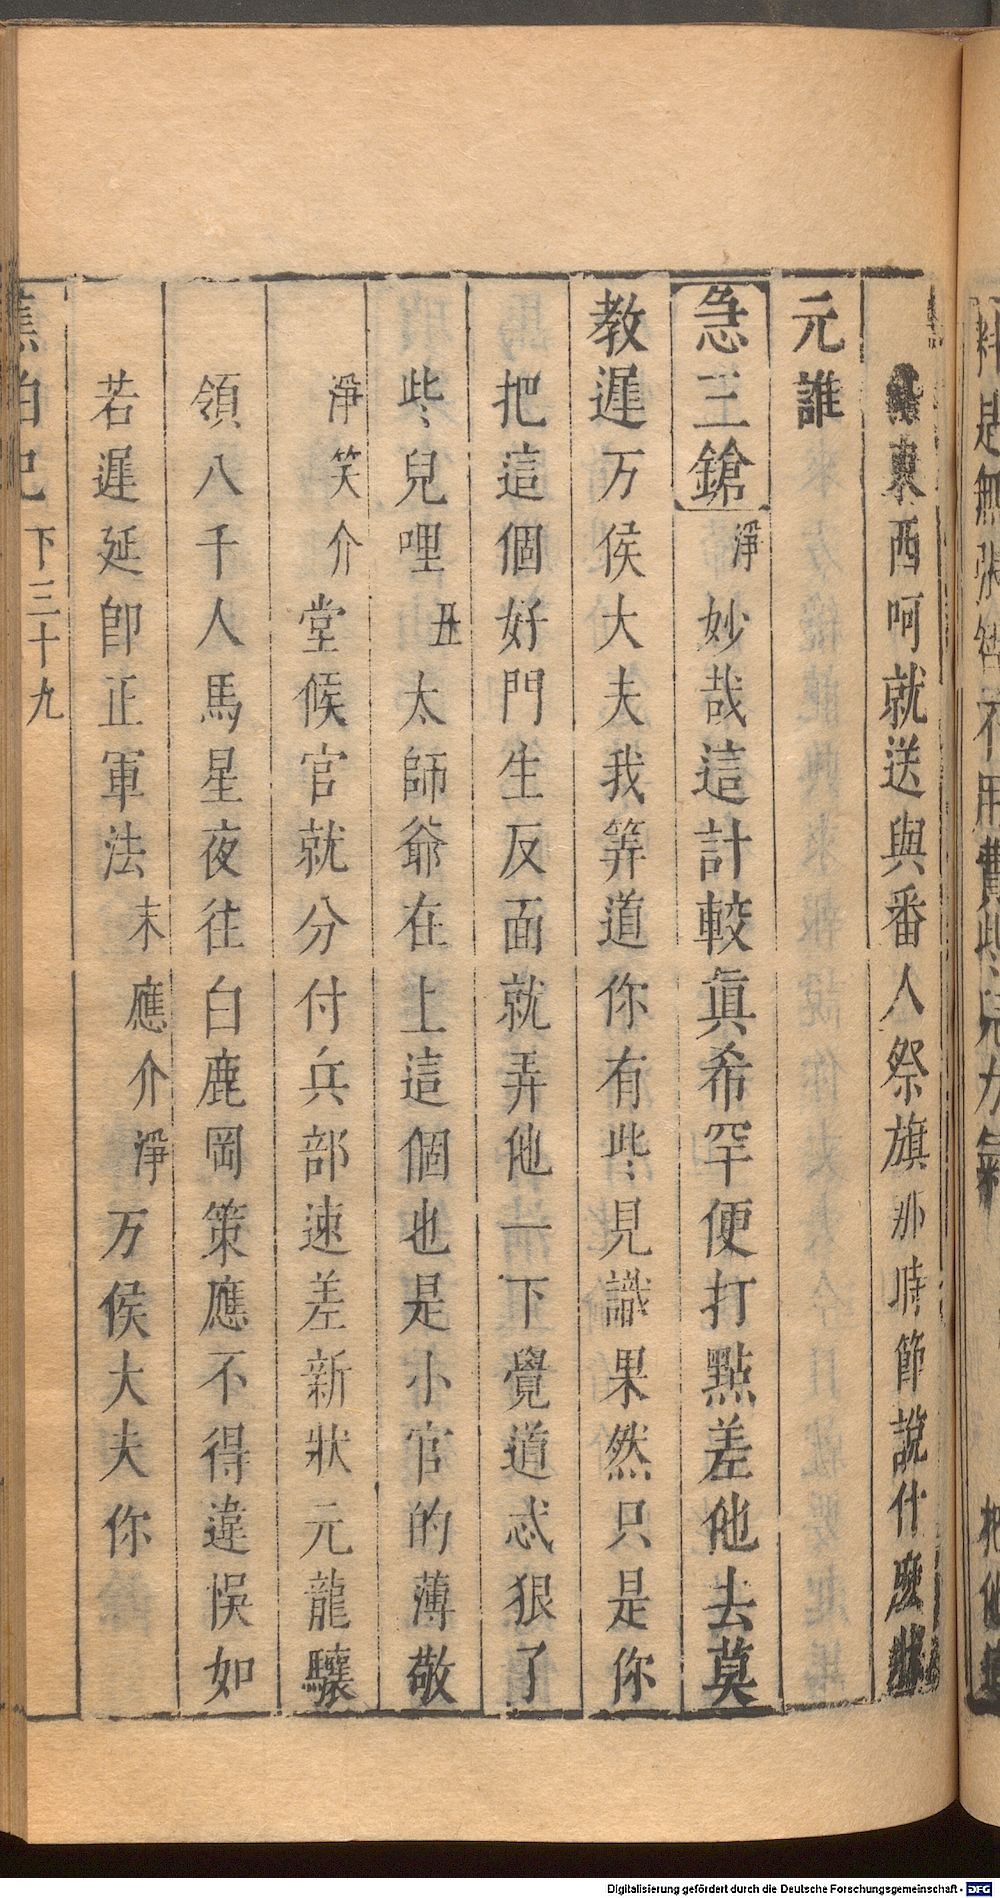 東西呵就送與番人祭旗那時節說什麽狀
元誰
急三鎗淨妙哉這計較眞希罕便打點差他去莫
教遲万俟大夫我筭道你有些見識果然只是你
把這個好門生反面就弄他一下覺道忒狠了
些兒哩丑太師爺在上這個也是小官的薄敬
淨笑介堂候官就分付兵部速差新狀元龍驤
領八千人馬星夜往白鹿岡策應不得違悞如
若遲延卽正軍法末應介淨万俟大夫你
蕉帕記
下三十九
Digitalisierung gefördert durch die Deutsche Forschungsgemeinschaft - DFG